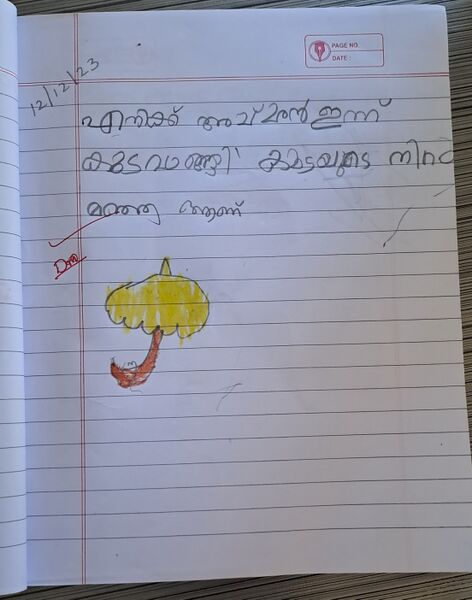 PAGE NO
DATE :
12/12/23
എനിക്ക് അച്ഛൻ ഇന്ന്
കുടവാങ്ങി കുടയുടെ നിറം
മഞ്ഞ ആണ്